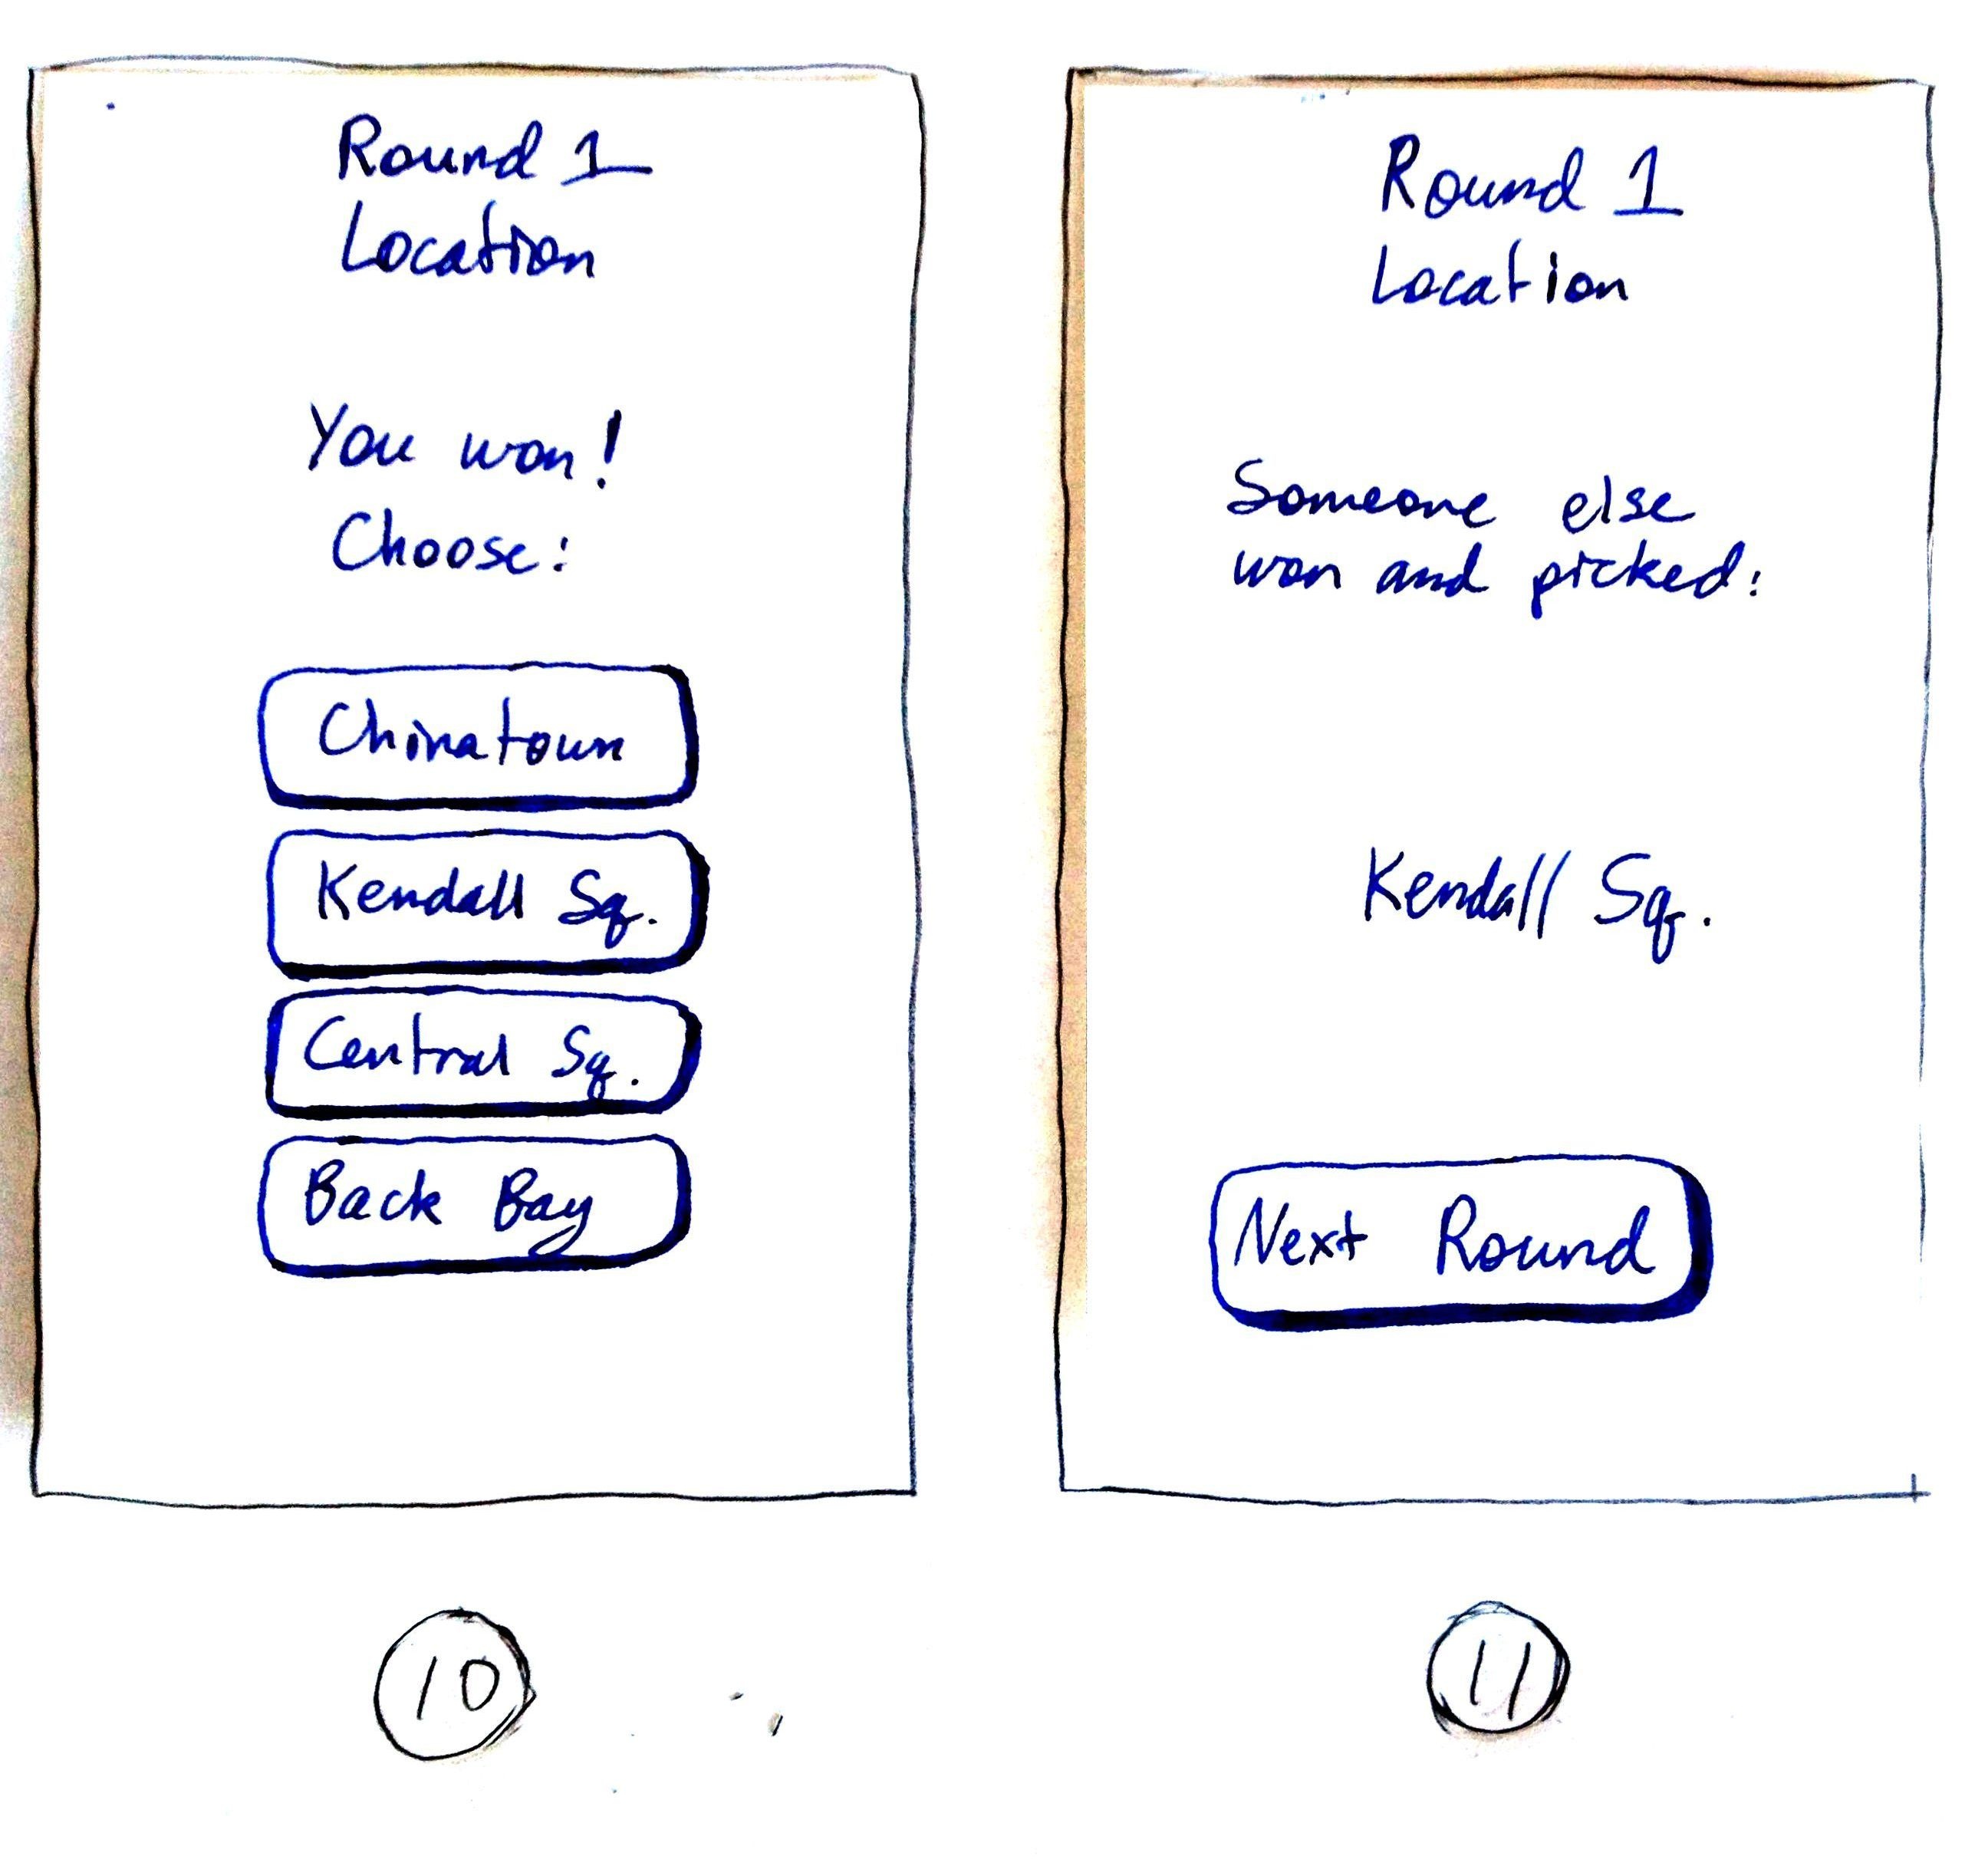 Round 1
Location
You won!
Choose:
Chinatown
Kendall Sq.
Central Sq.
Back Bay
10
Round 1
Location
Someone else
won and picked:
Kendall Sq.
Next Round
11